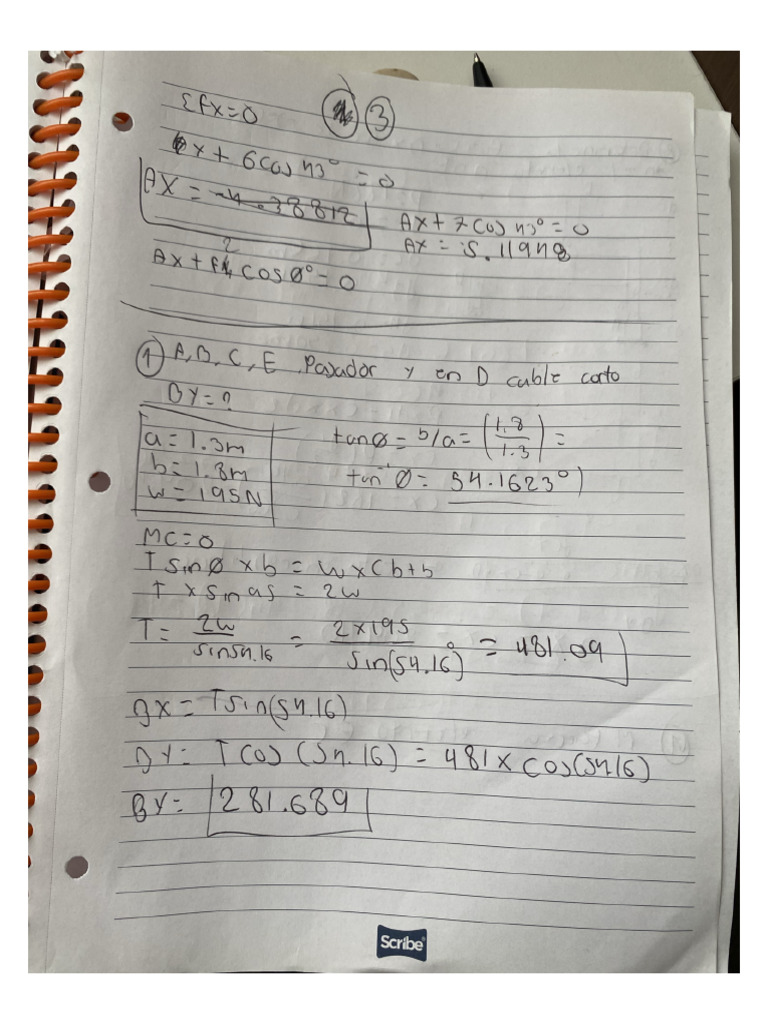 ΣFx=0 3
Ax + 6cos 43° = 0
AX = -4.38812
Ax + 7cos 43° = 0
Ax = 5.119478
Ax + F2 cos θ° = 0
① A, B, C, E Pasador y en D cable corto
BY = ?
a = 1.3m
b = 1.8m
w = 195N
tanθ = b/a = (1.8/1.3) =
tan⁻¹θ = 54.1623°)
MC=0
T sinθ × b = W × (b+b
T × sin as = 2w
T = 2w/sin54.16 = 2×195/sin(54.16)° = 481.09
BX = T sin(54.16)
BY = T cos (54.16) = 481 × cos(54.16)
BY = 281.689
Scribe